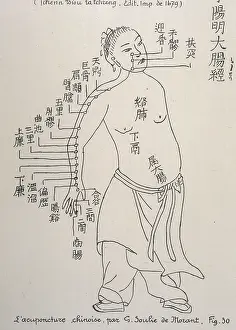 (Tchenn Tsiou ta tchreng. Edit. Imp. de 1679)
陽明大腸經
禾髎
迎香
扶突
天鼎
巨骨
肩髃
臂臑
五里
肘髎
曲池
三里
上廉
下廉
溫溜
偏歷
陽谿
合谷
三間
二間
商陽
絡肺
下膈
屬大腸
L'acuponcture chinoise, par G. Soulié de Morant. Fig. 30